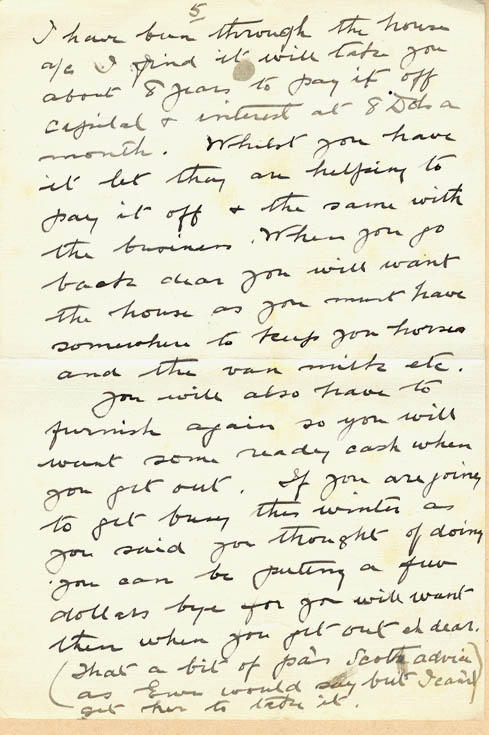 5
I have been through the house
a/c I find it will take you
about 8 years to pay it off
capital & interest at 8 Dols a
month. Whilst you have
it let they are helping to
pay it off & the same with
the business. When you go
back dear you will want
the house as you must have
somewhere to keep you horses
and the van milk etc.
you will also have to
furnish again so you will
want some ready cash when
you get out. If you are going
to get busy this winter as
you said you thought of doing
you can be putting a few
dollars bye for you will want
them when you get out eh dear.
(That a bit of pa's Scotch advice
as Ewe would say but I can't
get her to take it.)